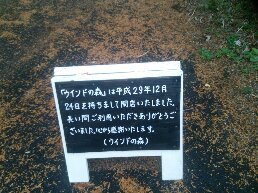 「ウインドの森」は平成29年12月
24日を持ちまして閉店いたしました。
長い間ご利用いただきありがとうご
ざいました。心から感謝いたします。
(ウインドの森)